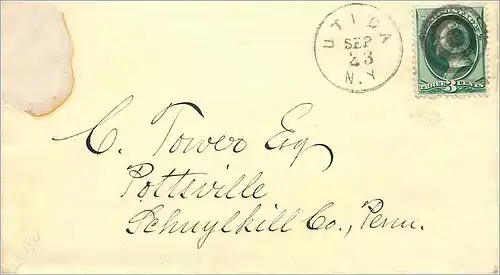 UTICA
SEP
23
N.Y
POSTAGE
THREE 3 CENTS
C. Tower Esq
Pottsville
Schuylkill Co., Penn.